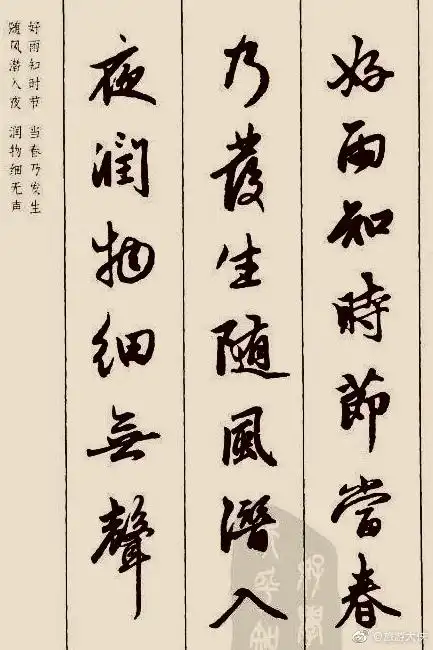 好雨知時節當春
乃發生随風潛入
夜潤物細無聲
好雨知时节 当春乃发生
随风潜入夜 润物细无声
@旅游大侠